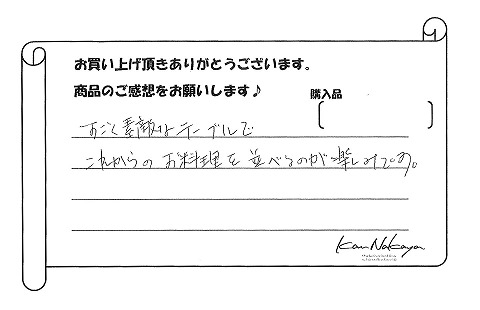 お買い上げ頂きありがとうございます。
商品のご感想をお願いします♪
購入品
すごく素敵なテーブルで
これからのお料理を並べるのが楽しみです。
Kan Nakaya